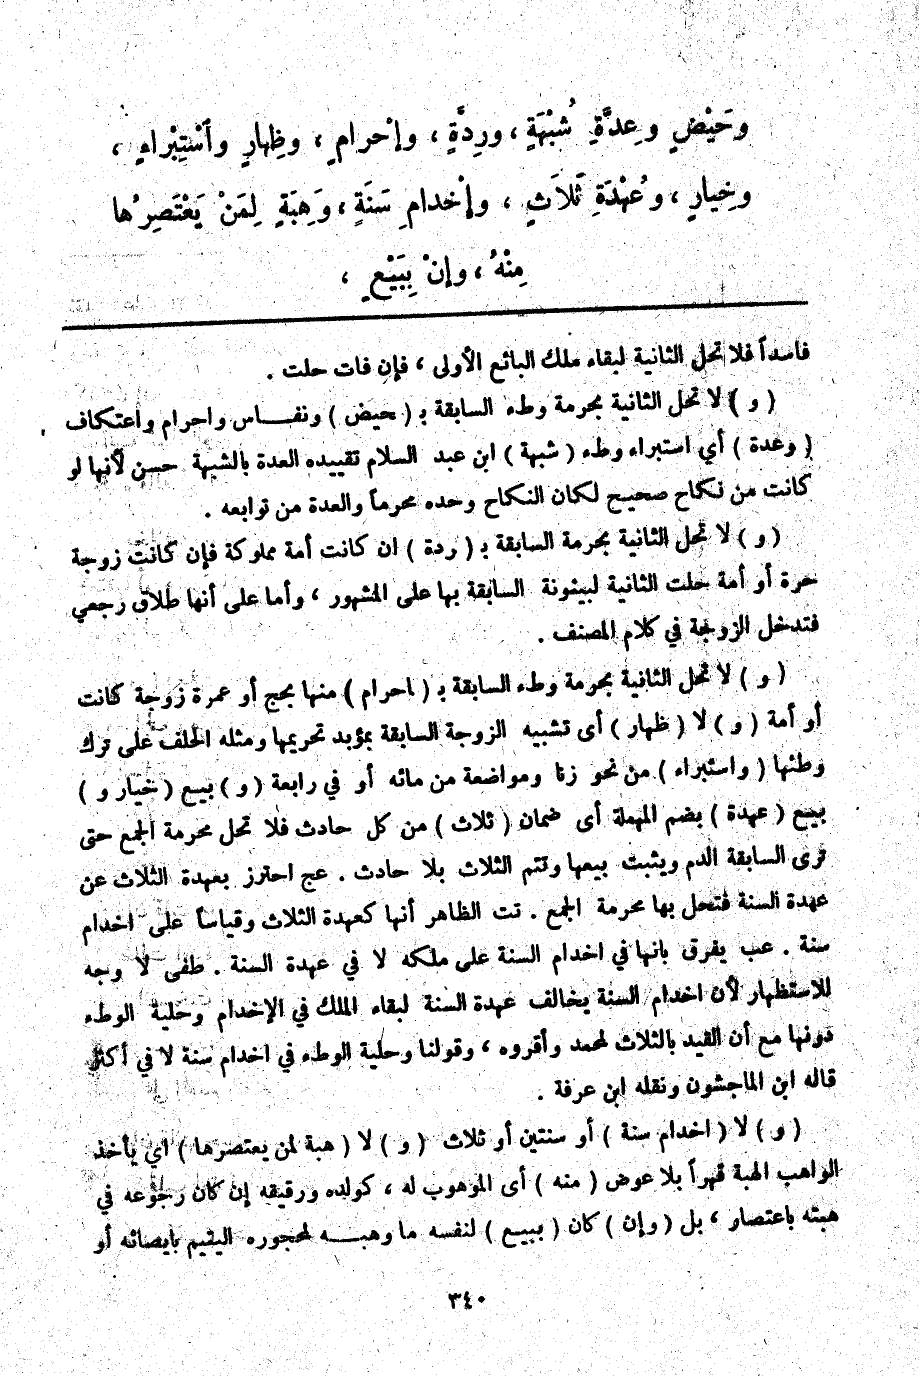 وحَيْضٍ وعِدَّةِ شُبْهَةٍ ، ورِدَّةٍ ، وإحْرامٍ ، وظِهارٍ وٱسْتِبْراءٍ ،
وخِيارٍ ، وعُهْدَةِ ثَلاَثٍ ، وإخْدامِ سَنَةٍ ، وَهِبَةٍ لِمَنْ يَعْتَصِرُها
مِنْهُ ، وإنْ بِبَيْعٍ ،
فاسداً فلا تحل الثانية لبقاء ملك البائع الأولى ، فإن فات حلت .
( و ) لا تحل الثانية بحرمة وطء السابقة بـ ( حيض ) ونفـــاس واحرام واعتكاف
( وعدة ) أي استبراء وطء ( شبهة ) ابن عبد السلام تقييده العدة بالشبهة حسن لأنها لو
كانت من نكاح صحيح لكان النكاح وحده محرماً والعدة من توابعه .
( و ) لا تحل الثانية بحرمة السابقة بـ ( ردة ) ان كانت أمة مملوكة فإن كانت زوجة
حرة أو أمة حلت الثانية لبينونة السابقة بها على المشهور ، وأما على أنها طلاق رجعي
فتدخل الزوجة في كلام المصنف .
( و ) لا تحل الثانية بحرمة وطء السابقة بـ ( احرام ) منها بحج أو عمرة زوجة كانت
أو أمة ( و ) لا ( ظهار ) أى تشبيه الزوجة السابقة بمؤبد تحريمها ومثله الحلف على ترك
وطئها ( واستبراء ) من نحو زنا ومواضعة من مائه أو في رابعة ( و ) بيع ( خيار و )
بيع ( عهدة ) بضم المهملة أى ضمان ( ثلاث ) من كل حادث فلا تحل محرمة الجمع حتى
ترى السابقة الدم ويثبت بيعها وتتم الثلاث بلا حادث . عج احترز بعهدة الثلاث عن
عهدة السنة فتحل بها محرمة الجمع . تت الظاهر أنها كعهدة الثلاث وقياساً على اخدام
سنة . عب يفرق بانها في اخدام السنة على ملكه لا في عهدة السنة . طفى لا وجه
للاستظهار لأن اخدام السنة يخالف عهدة السنة لبقاء الملك في الإخدام وحلية الوطء
دونها مع أن القيد بالثلاث لمحمد وأقروه ، وقولنا وحلية الوطء في اخدام سنة لا في أكثر
قاله ابن الماجشون ونقله ابن عرفة .
( و ) لا ( اخدام سنة ) أو سنتين أو ثلاث ( و ) لا ( هبة لمن يعتصرها ) اي يأخذ
الواهب الهبة قهراً بلا عوض ( منه ) أى الموهوب له ، كولده ورقيقه إن كان رجوعه في
هبته باعتصار ، بل ( وإن ) كان ( ببيع ) لنفسه ما وهبـــه لمحجوره اليتيم بايصائه أو
٣٤٠